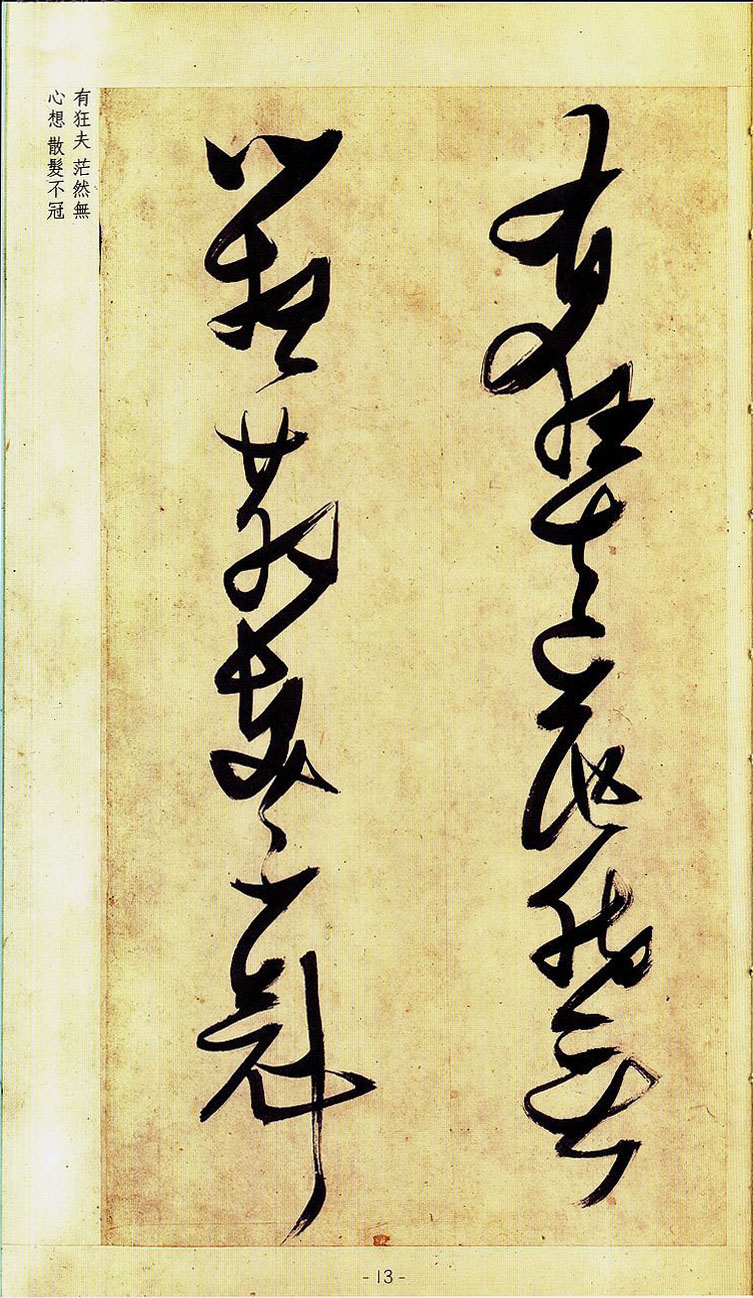 有狂夫茫然無
心想散髮不冠
有狂夫 茫然無
心想 散髮不冠
-13-